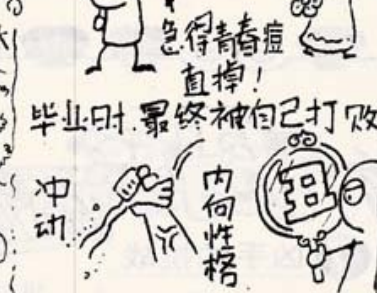 急得青春痘
直掉！
毕业时，最终被自己打败
冲动
内向性格
丑